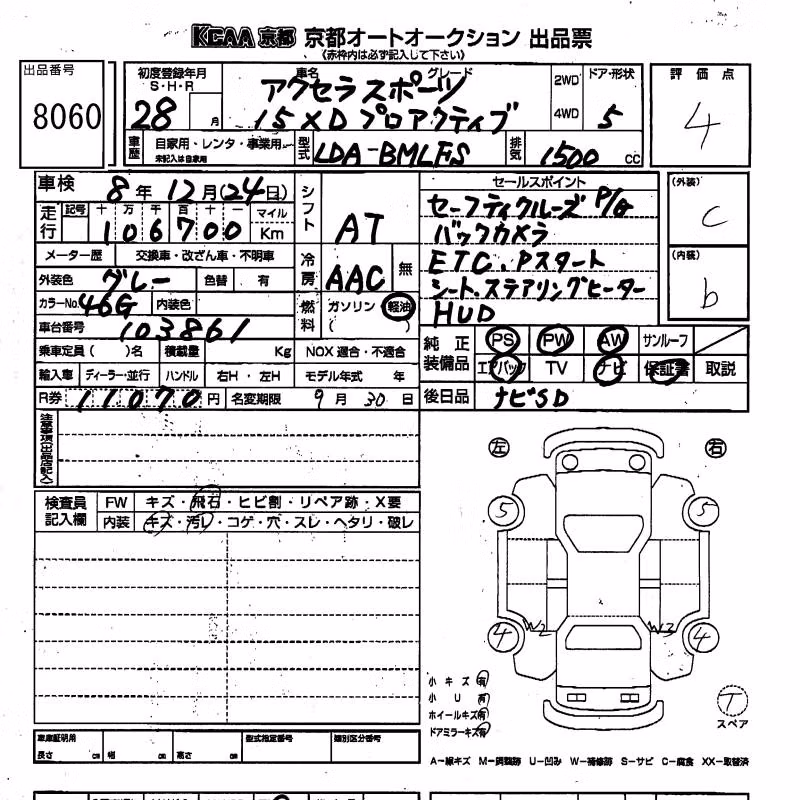 KCAA 京都 京都オートオークション 出品票
(赤枠内は必ず記入して下さい)
出品番号
8060
初度登録年月
S・H・R
28 月
車名 グレード
アクセラスポーツ
15XD プロアクティブ
2WD
4WD
ドア・形状
5
評価点
4
車歴 自家用・レンタ・事業用
未記入は自家用
型式 LDA-BMLFS
排気 1500 CC
車検 8年 12月(24日)
走行 記号 十 万 千 百 十 一
106700
マイル
Km
シフト AT
メーター歴 交換車・改ざん車・不明車
外装色 グレー 色替 有
冷房 AAC 無
カラーNo. 46G 内装色
燃料 ガソリン・軽油
( )
車台番号 103861
乗車定員( )名 積載量 Kg NOX 適合・不適合
輸入車 ディーラー・並行 ハンドル 右H・左H モデル年式 年
R券 11070円 名変期限 9月 30日
セールスポイント
セーフティクルーズP/G
バックカメラ
ETC、Pスタート
シート、ステアリングヒーター
HUD
(外装)
C
(内装)
b
純正装備品 PS PW AW サンルーフ
エアバック TV ナビ 保証書 取説
後日品 ナビSD
注意事項(出品店記入)
検査員記入欄 FW キズ・飛石・ヒビ割・リペア跡・X要
内装 キズ・汚レ・コゲ・穴・スレ・ヘタリ・破レ
左 右
5 5
4 W2 W3 4
小キズ 有
小U 有
ホイールキズ 有
ドアミラーキズ 有
T
スペア
車庫証明用
長さ cm 幅 cm 高さ cm
型式指定番号
類別区分番号
A−線キズ M−調整跡 U−凹み W−補修跡 S−サビ C−腐食 XX−取替済